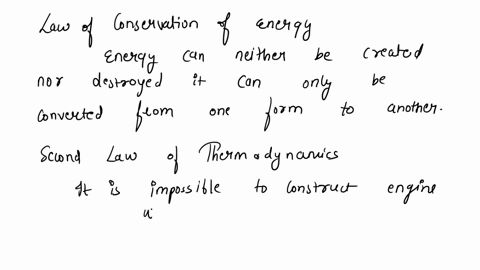 Law of Conservation of energy
Energy can neither be created
nor destroyed it can only be
converted from one form to another.
Second Law of Thermodynamics
It is impossible to construct engine